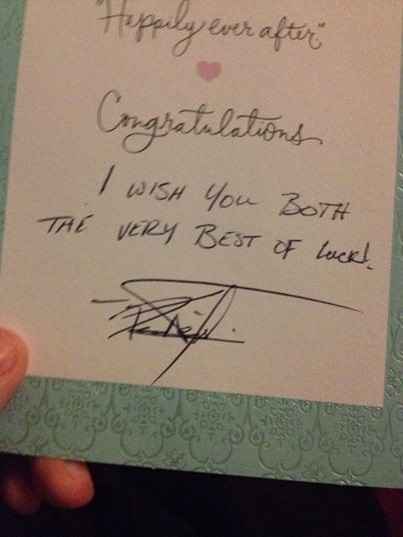 "Happily ever after"
Congratulations
I WISH YOU BOTH
THE VERY BEST OF LUCK!